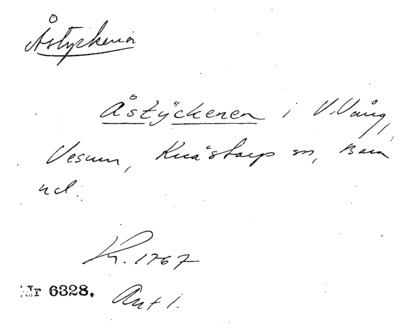 Åstyckena
Åstÿckenen i V. Vång,
Vesum, Knästorp sn, Bara
hd.
Kr. 1767
Nr 6328. Ant 1.